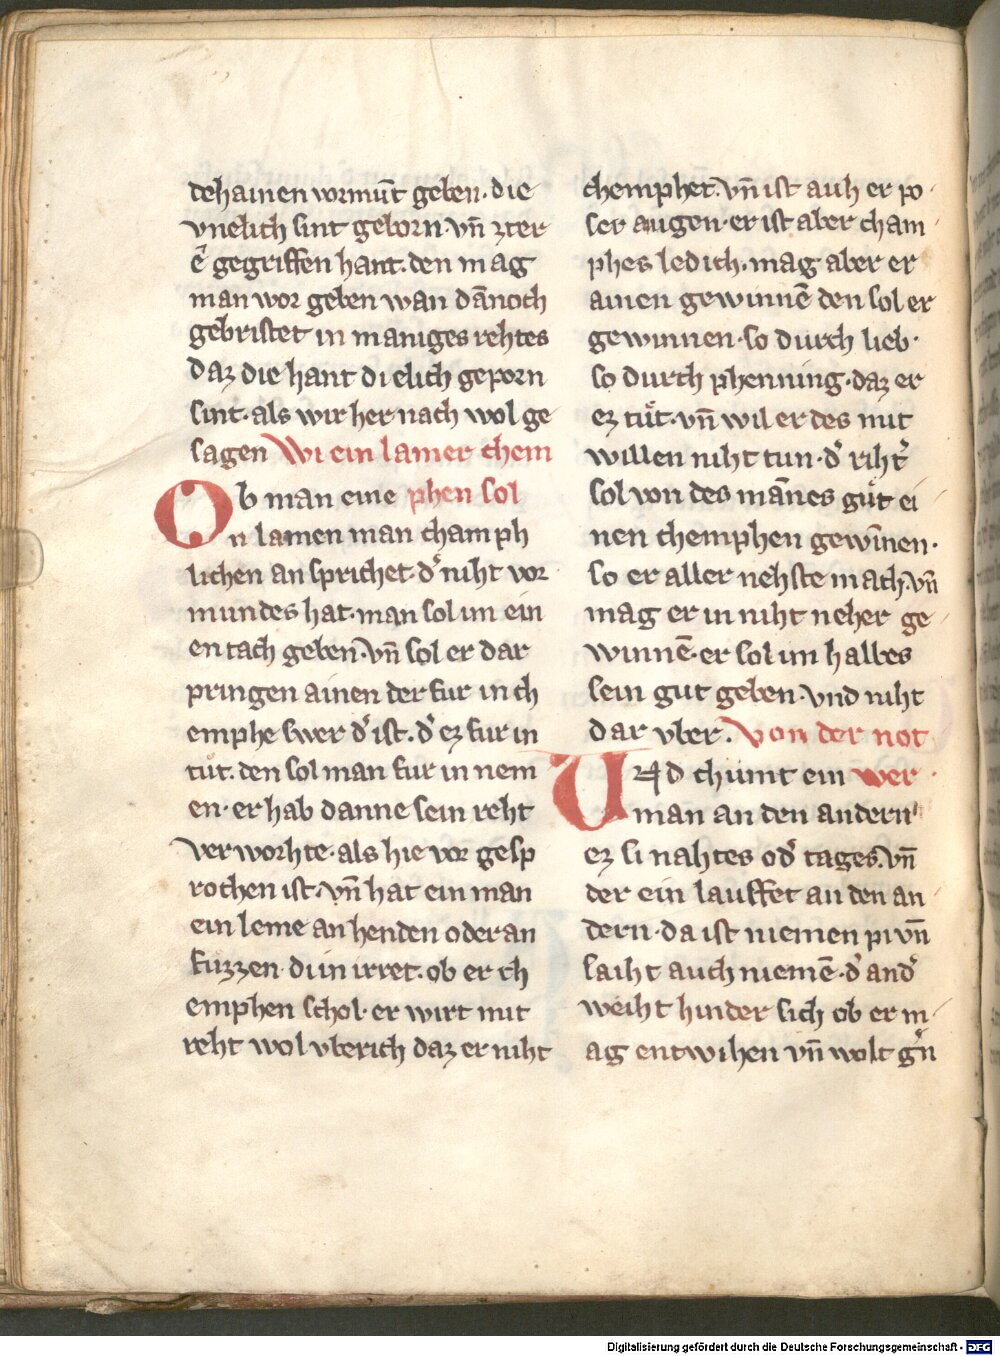 dehainen vormūt geben· die
vnelich sint geborn· vn̄ zter
e͛ gegriffen hant· den mag
man vor geben wan dānoch
gebristet in maniges rehtes
daz die hant di elich geporn
sint· als wir her nach wol ge
sagen Wi ein lamer chem
Ob man eine phen sol
n lamen man champh
lichen an sprichet· d͛ niht vor
mundes hat· man sol im ein
en tach geben· vn̄ sol er dar
pringen ainen der fur in ch
emphe swer d͛ ist· d͛ ez fur in
tůt· den sol man fur in nem
en· er hab danne sein reht
verworhte· als hie vor gesp
rochen ist· vn̄ hat ein man
ein leme an henden oder an
fuzzen· di in irret· ob er ch
emphen schol· er wirt mit
reht wol vberich daz er niht
chemphet· vn̄ ist auh er po
ser augen· er ist aber cham
phes ledich· mag aber er
ainen gewinnē den sol er
gewinnen· so durch lieb·
so durch phenning· daz er
ez tůt· vn̄ wil er des mit
willen niht tun· d͛ riht͛
sol von des mānes gůt ei
nen chemphen gewīnen·
so er aller nehste mach· vn̄
mag er in niht neher ge
winnē· er sol im halbes
sein gut geben· vnd niht
dar vber· Von der not
Und chumt ein wer
man an den andern
ez si nahtes od͛ tages· vn̄
der ein lauffet an den an
dern· da ist niemen pi vn̄
saiht auch niemē· d͛ and͛
weiht hinder sich ob er m
ag entwihen vn̄ wolt g͛n
Digitalisierung gefördert durch die Deutsche Forschungsgemeinschaft - DFG